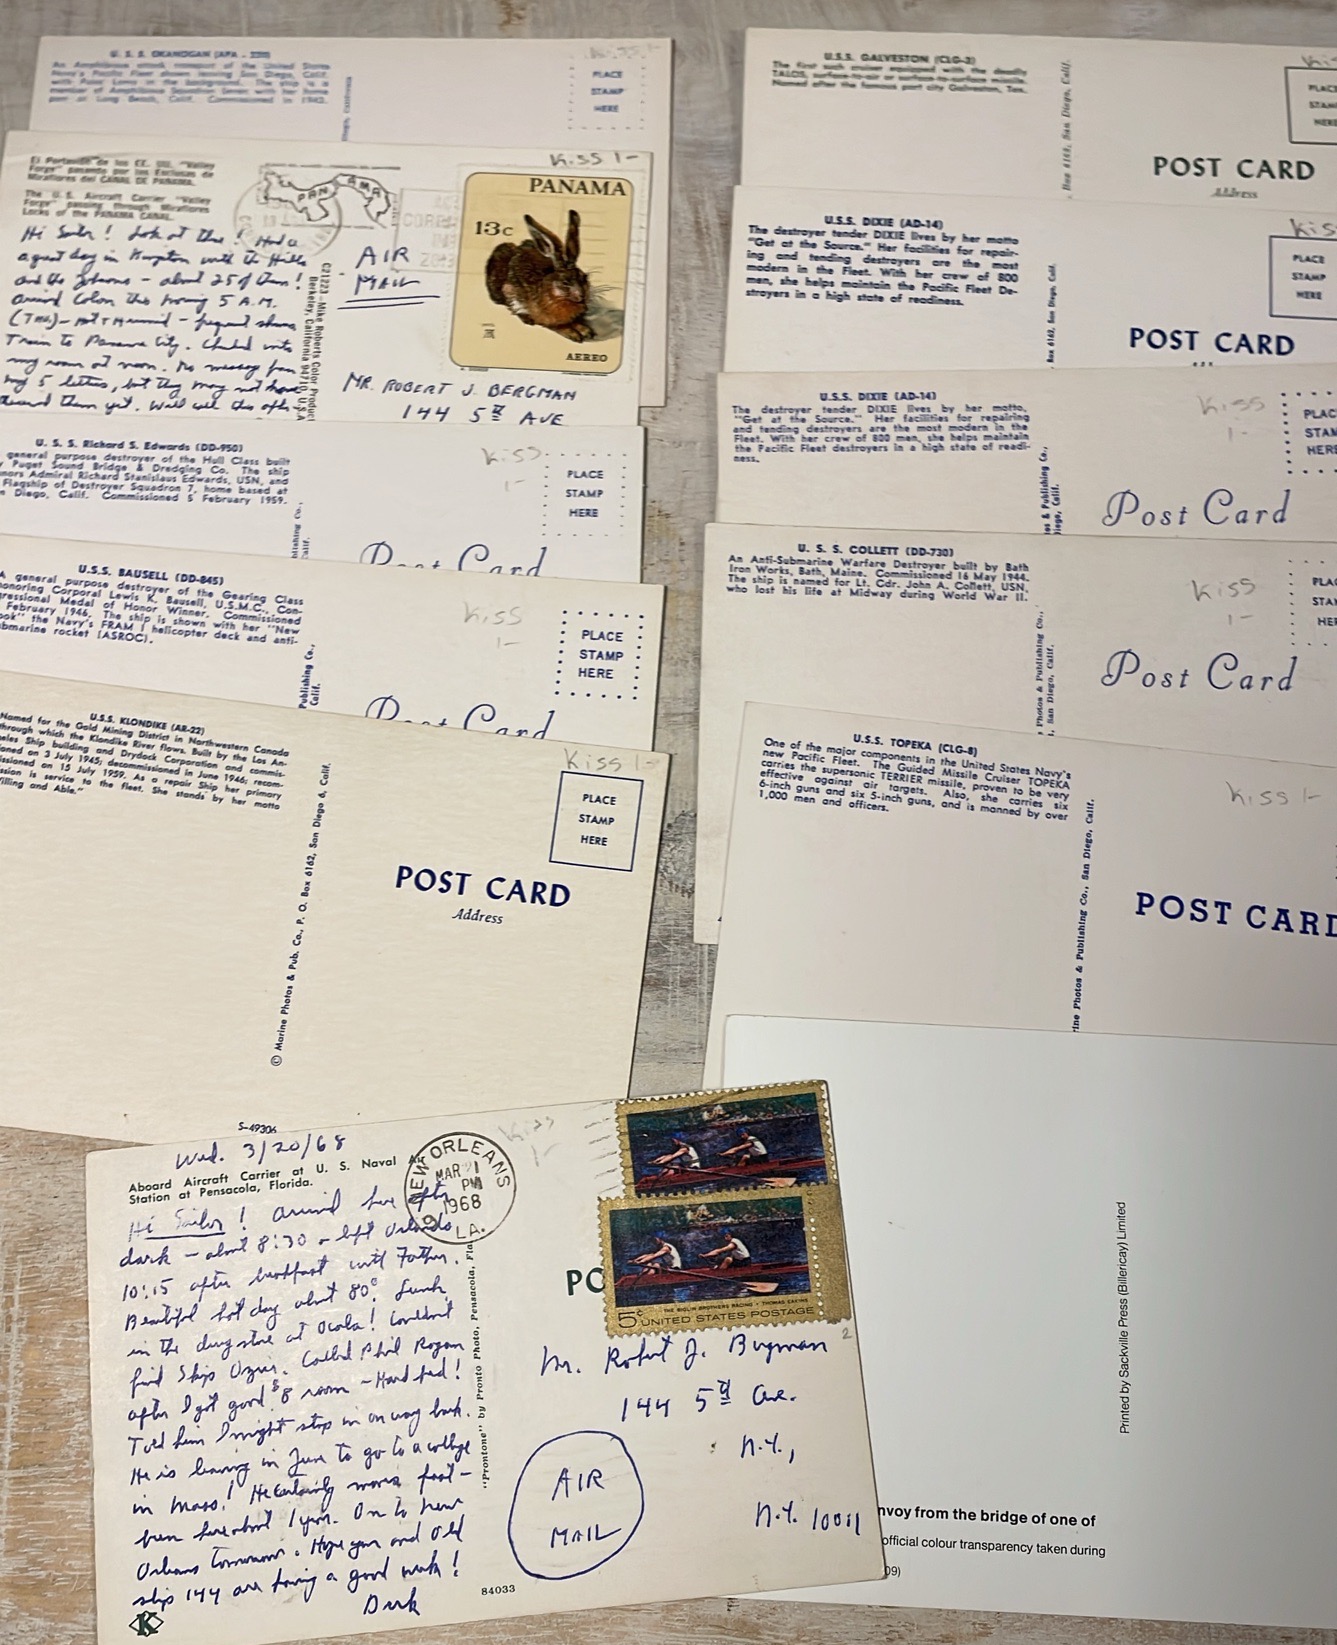 U. S. S. OKANOGAN (APA - 220)
An Amphibious attack transport of the United States
Navy's Pacific Fleet shown leaving San Diego, Calif.
with Point Loma in the background. The ship is a
member of Amphibious Squadron Seven with her home
port at Long Beach, Calif. Commissioned in
Diego, California
Kiss 1-
PLACE
STAMP
HERE
El Portavión de los EE. UU. "Valley
Forge" pasando por las Esclusas de
Miraflores del CANAL DE PANAMA.
The U. S. Aircraft Carrier "Valley
Forge" passing through Miraflores
Locks of the PANAMA CANAL.
Hi Sailor! Look at this! Had a
a great day in Kingston with the Hills
and the - about 25 of them!
arrived Colon this morning 5 A.M.
(Tues.) - Hot & Humid - frequent showers
Train to Panama City. Checked into
my room at noon. No message from
my 5 letters, but they may not have
received them yet. Will
C21223 - Mike Roberts Color Product
Berkeley, California 94710, U.S.A.
PANAMA
Kiss 1-
AIR
MAIL
PANAMA
13c
AEREO
MR. ROBERT J. BERGMAN
144 5th AVE
U. S. S. Richard S. Edwards (DD-950)
general purpose destroyer of the Hull Class built
Puget Sound Bridge & Dredging Co. The ship
nors Admiral Richard Stanislaus Edwards, USN, and
Flagship of Destroyer Squadron 7, home based at
n Diego, Calif. Commissioned 5 February 1959.
blishing Co.,
Calif.
Kiss
1-
PLACE
STAMP
HERE
Post Card
U.S.S. BAUSELL (DD-845)
A general purpose destroyer of the Gearing Class
honoring Corporal Lewis K. Bausell, U.S.M.C., Con-
gressional Medal of Honor Winner. Commissioned
February 1946. The ship is shown with her "New
ook" the Navy's FRAM I helicopter deck and anti-
bmarine rocket (ASROC).
Publishing Co.,
Calif.
Kiss
1-
PLACE
STAMP
HERE
Post Card
U.S.S. KLONDIKE (AR-22)
Named for the Gold Mining District in Northwestern Canada
through which the Klondike River flows. Built by the Los An-
eles Ship building and Drydock Corporation and commis-
ioned on 3 July 1945; decommissioned in June 1946; recom-
issioned on 15 July 1959. As a repair Ship her primary
ssion is service to the fleet. She stands by her motto
illing and Able."
© Marine Photos & Pub. Co., P. O. Box 6162, San Diego 6, Calif.
Kiss 1-
PLACE
STAMP
HERE
POST CARD
Address
S-49306
Wed. 3/20/68
Aboard Aircraft Carrier at U. S. Naval Air
Station at Pensacola, Florida.
Hi Sailor! Arrived here after
dark - about 8:30 - left Orlando
10:15 after breakfast with Father.
Beautiful hot day about 80°. Lunch
in the drug store at Ocala! Couldn't
find Skip . Called Phil Rogan
after I got good $8 room - Hard bed!
Told him I might stop in on way back.
He is leaving in June to go to a college
in Mass.! He certainly moves fast -
been here about 1 year. On to New
Orleans tomorrow. Hope you and old
ship 144 are having a good week!
Dick
K
84033
"Prontone" by Pronto Photo, Pensacola, Fla.
NEW ORLEANS
MAR 21
PM
1968
LA.
Kiss
1-
PO
THE BIGLIN BROTHERS RACING • THOMAS EAKINS
5c UNITED STATES POSTAGE
2
Mr. Robert J. Bergman
144 5th Ave.
N.Y.,
N.Y. 10011
AIR
MAIL
U.S.S. GALVESTON (CLG-3)
The first such cruiser equipped with the deadly
TALOS, surface-to-air or surface-to-surface missile.
Named after the famous port city Galveston, Tex.
Box 6162, San Diego, Calif.
Kis
PLACE
STAMP
HERE
POST CARD
Address
U.S.S. DIXIE (AD-14)
The destroyer tender DIXIE lives by her motto
"Get at the Source." Her facilities for repair-
ing and tending destroyers are the most
modern in the Fleet. With her crew of 800
men, she helps maintain the Pacific Fleet De-
stroyers in a high state of readiness.
Box 6162, San Diego, Calif.
Kiss
PLACE
STAMP
HERE
POST CARD
U.S.S. DIXIE (AD-14)
The destroyer tender DIXIE lives by her motto,
"Get at the Source." Her facilities for repairing
and tending destroyers are the most modern in the
Fleet. With her crew of 800 men, she helps maintain
the Pacific Fleet destroyers in a high state of readi-
ness.
os & Publishing Co.,
Diego, Calif.
Kiss
1-
PLAC
STAM
HERE
Post Card
U. S. S. COLLETT (DD-730)
An Anti-Submarine Warfare Destroyer built by Bath
Iron Works, Bath, Maine. Commissioned 16 May 1944.
The ship is named for Lt. Cdr. John A. Collett, USN,
who lost his life at Midway during World War II.
Photos & Publishing Co.,
San Diego, Calif.
Kiss
1-
PLA
STA
HER
Post Card
U.S.S. TOPEKA (CLG-8)
One of the major components in the United States Navy's
new Pacific Fleet. The Guided Missile Cruiser TOPEKA
carries the supersonic TERRIER missile, proven to be very
effective against air targets. Also, she carries six
6-inch guns and six 5-inch guns, and is manned by over
1,000 men and officers.
ine Photos & Publishing Co., San Diego, Calif.
Kiss 1-
POST CARD
Printed by Sackville Press (Billericay) Limited
nvoy from the bridge of one of
official colour transparency taken during
09)